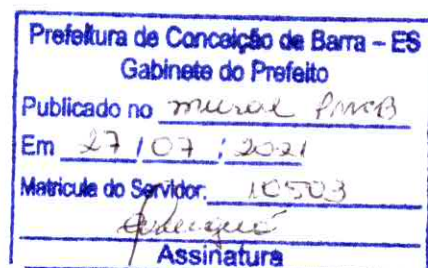 Prefeitura de Conceição de Barra – ES
Gabinete do Prefeito
Publicado no mural PMCB
Em 27 / 07 / 2021
Matricula do Servidor: 10503
Assinatura